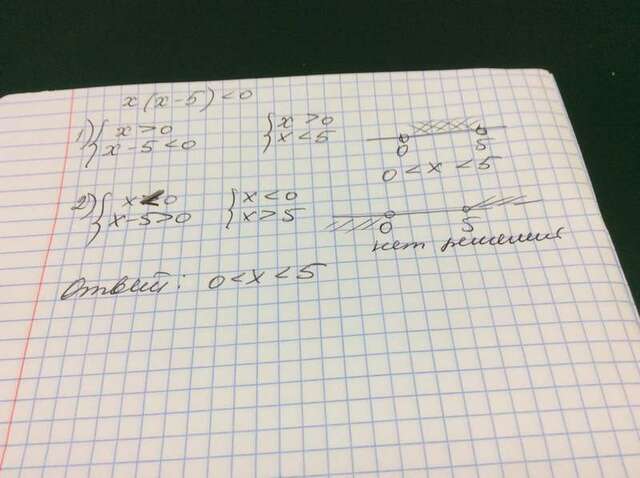 x(x-5)<0
1) { x>0 { x>0
x-5<0 x<5
0 5
0<x<5
2) { x<0 { x<0
x-5>0 x>5
0 5
нет решения
Ответ: 0<x<5